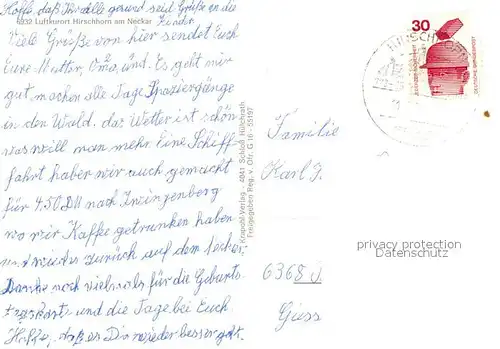 Hoffe, daß Ihr alle gesund seid Grüße an die
6932 Luftkurort Hirschhorn am Neckar
Kinder
Viele Grüße von hier sendet Euch
Eure Mutter, Oma, und. Es geht mir
gut machen alle Tage Spaziergänge
in den Wald, das Wetter ist schön
was will man mehr. Eine Schiff
fahrt haben wir auch gemacht
für 4.50 DM nach Zwingenberg
wo wir Kaffe getrunken haben
wieder zurück auf dem
Danke noch vielmals für die Geburts
und die Tage bei Euch
Hoffe, daß es Dir wieder besser geht.
Krapohl-Verlag 4041 Schloß Hülchrath
Freigegeben Reg. v. Ofr. G 16
30
DEUTSCHE BUNDESPOST
HIRSCHHORN
Familie
Karl F.
privacy protection
Datenschutz
6368